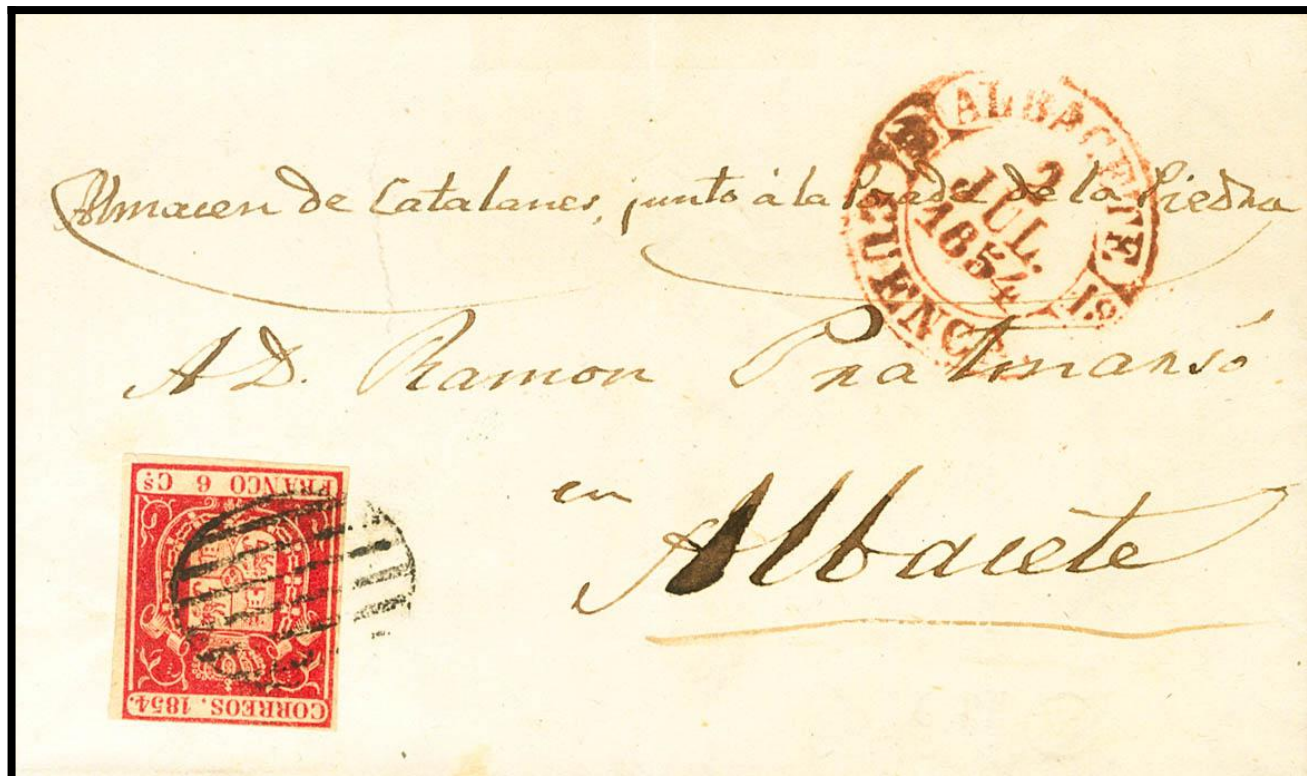 Almacen de Catalanes, junto á la Posada de la Piedra
ALBACETE
2
JUL.
1854
CUENCA
A D. Ramon Pratmarsó
en
Albacete
FRANCO 6 Cs
CORREOS. 1854.